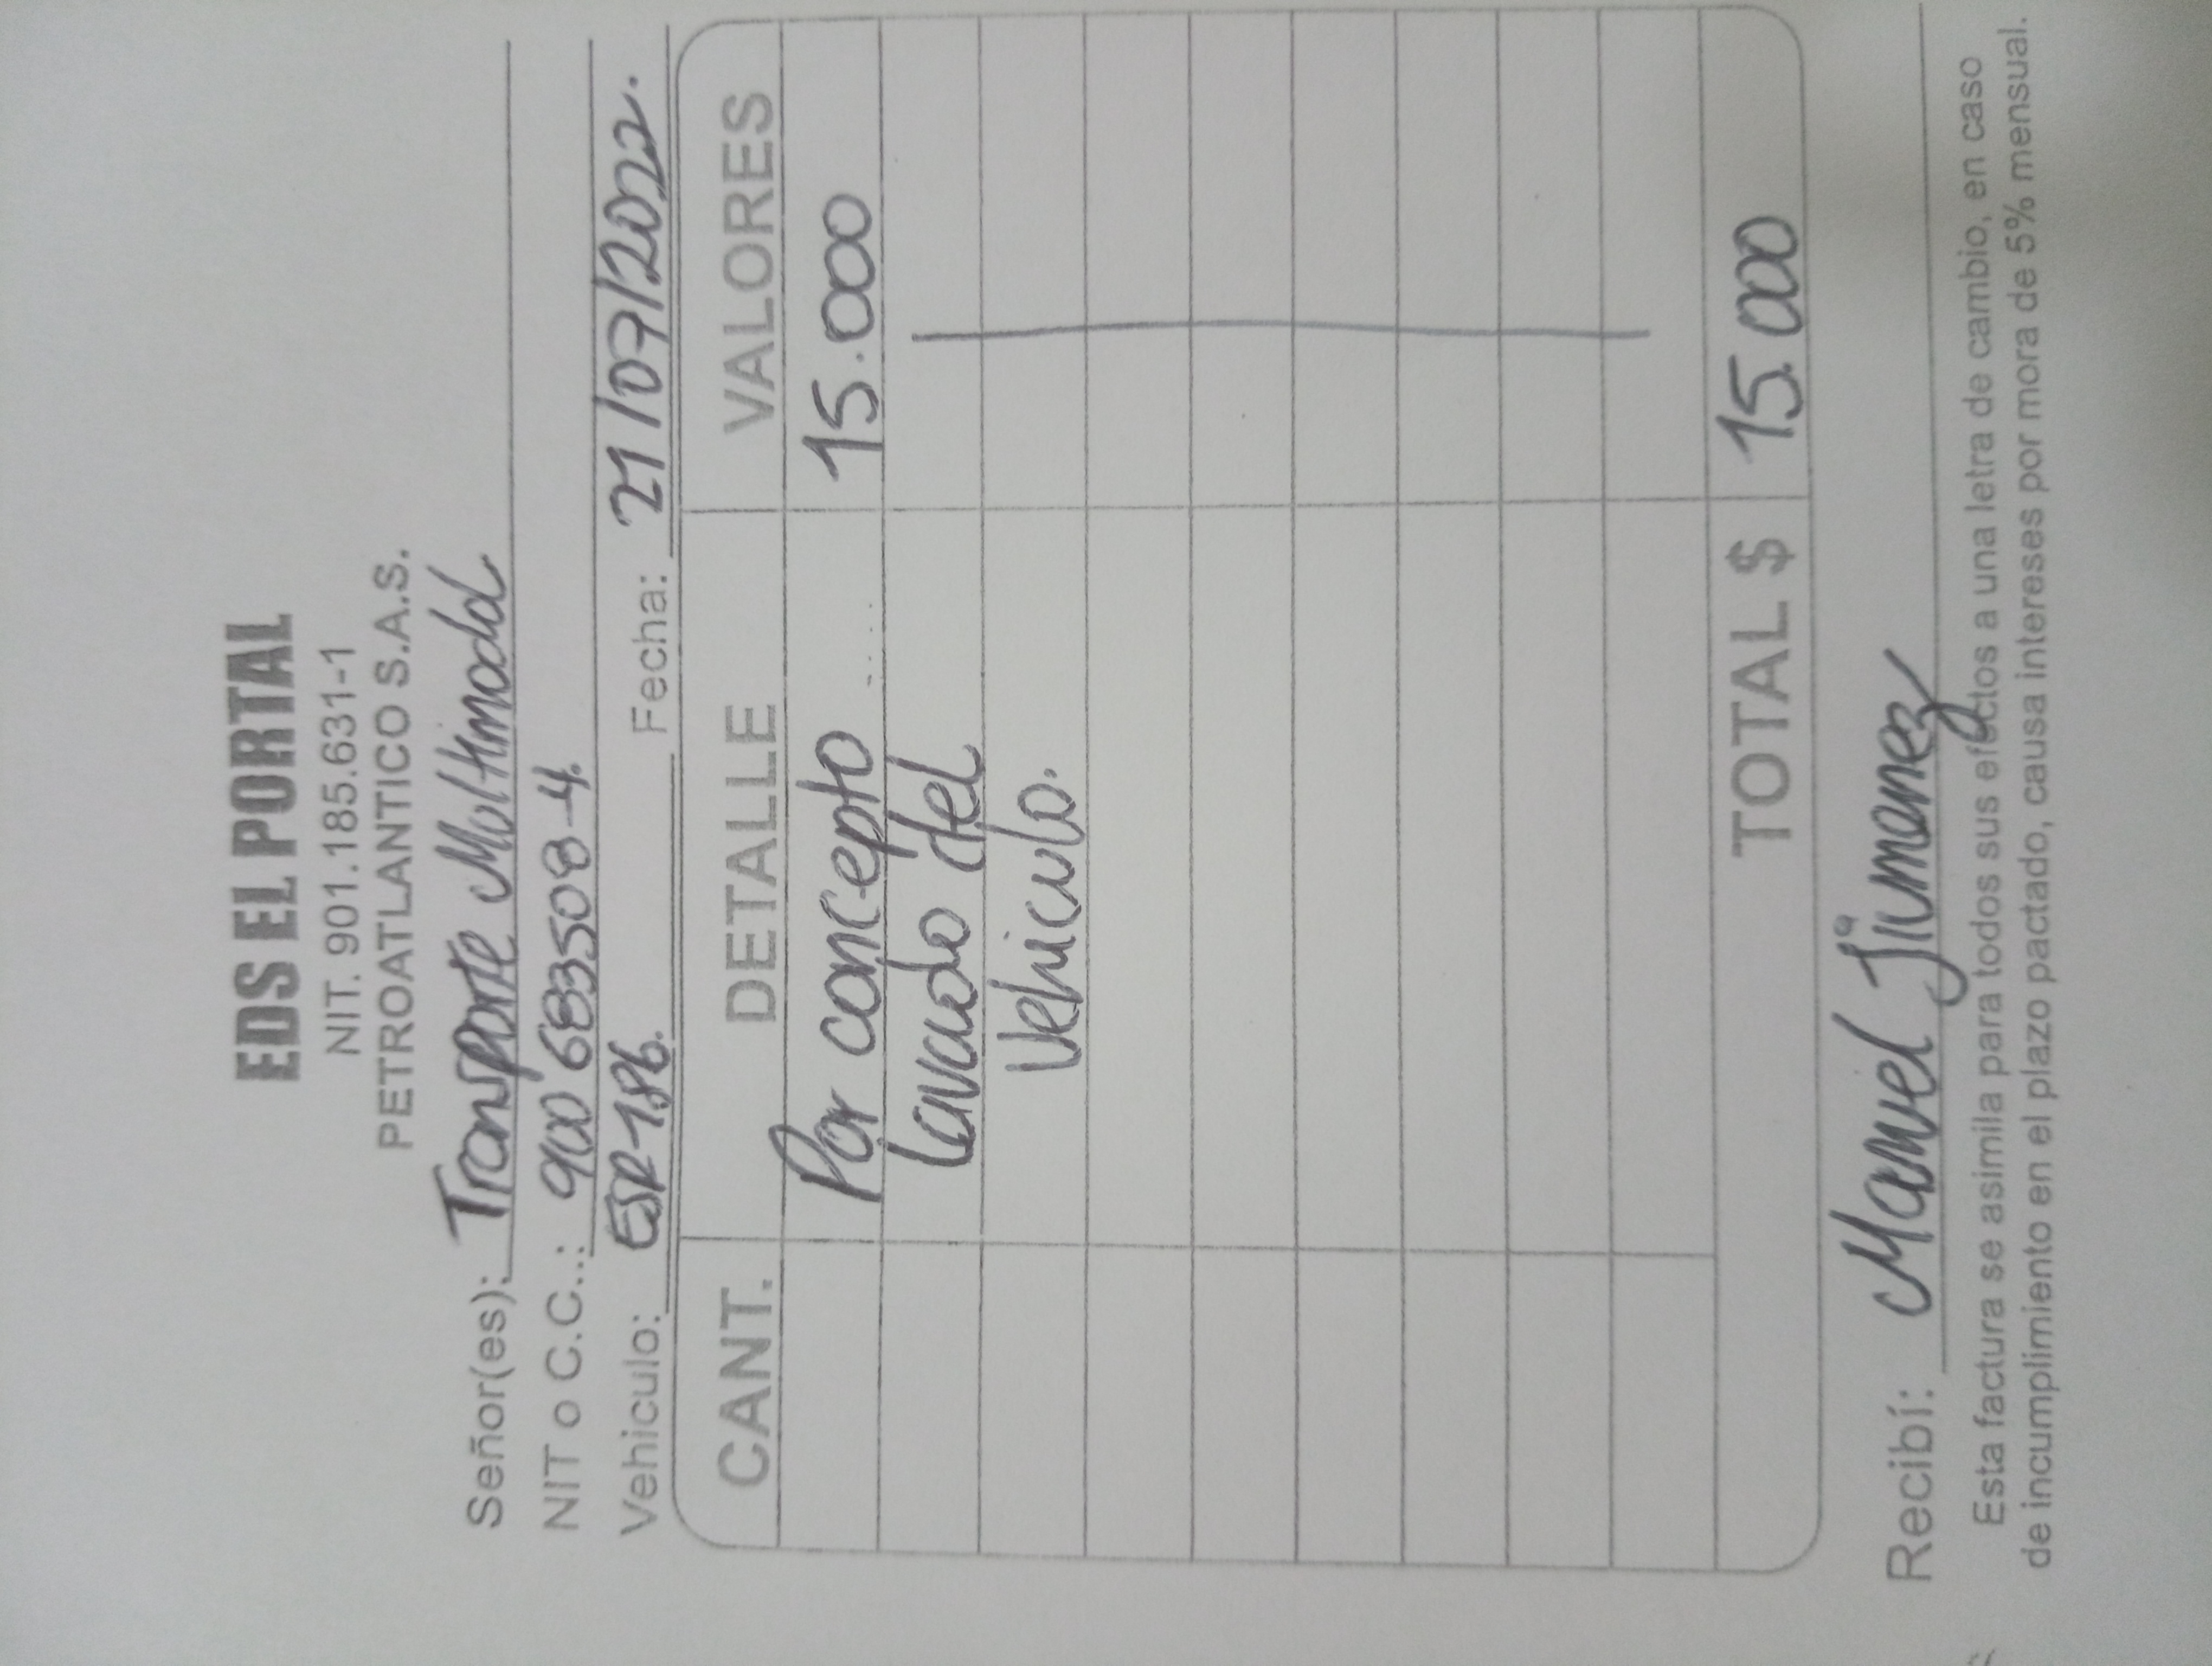 EDS EL PORTAL
NIT. 901.185.631-1
PETROATLANTICO S.A.S.
Señor(es): Transporte Multimodal
NIT o C.C..: 900 683508-4.
Vehiculo: ESR-786. Fecha: 21/07/2022.
CANT. DETALLE VALORES
Por concepto 15.000
lavado del
vehiculo.
TOTAL $ 15.000
Recibí: Manuel Jimenez
Esta factura se asimila para todos sus efectos a una letra de cambio, en caso
de incumplimiento en el plazo pactado, causa intereses por mora de 5% mensual.